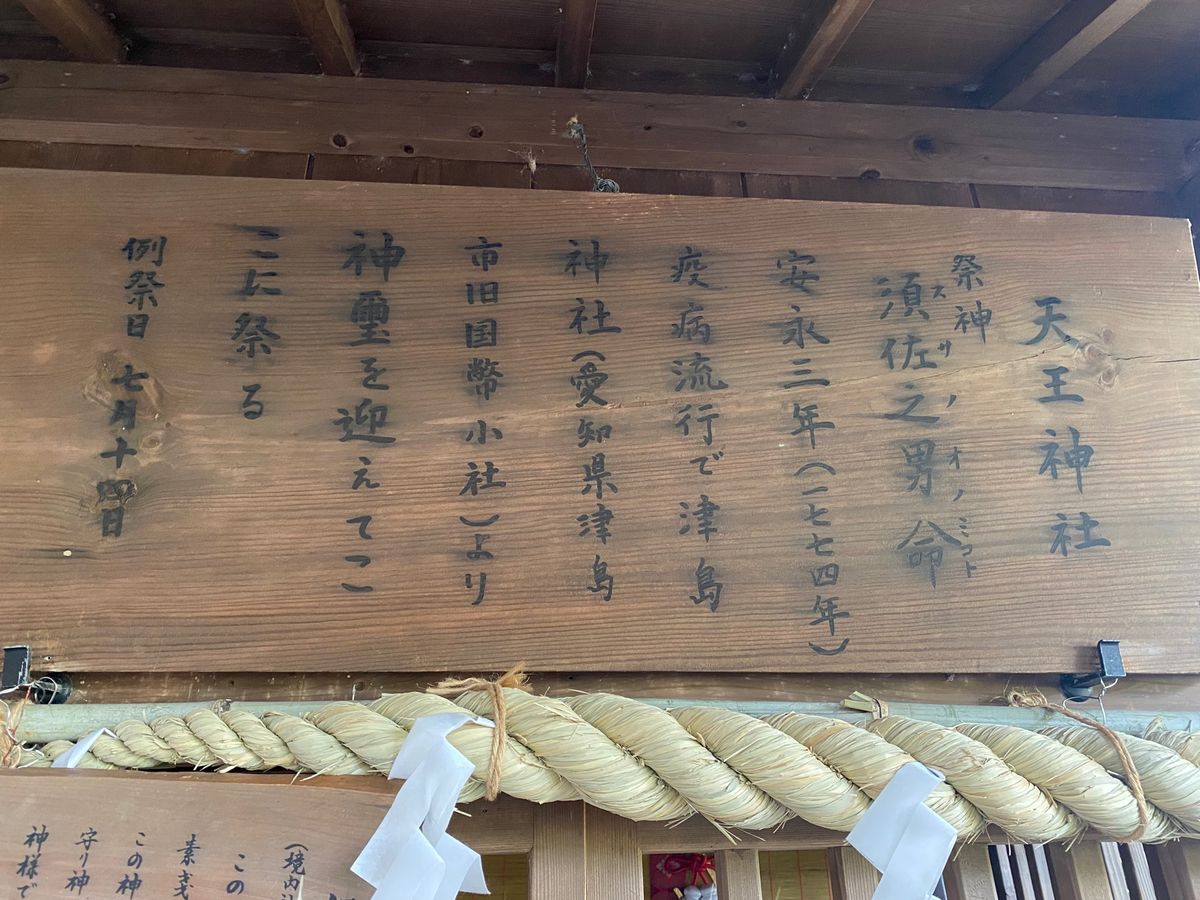 天王神社
祭神
須佐之男命
スサノオノミコト
安永三年(一七七四年)
疫病流行で津島
神社(愛知県津島
市旧国幣小社)より
神璽を迎えてこ
こに祭る
例祭日 七月十四日
(境内
この
素戔
この神
守り神
神様で